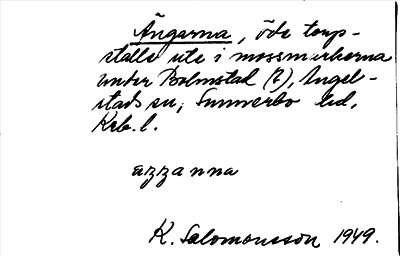 Ängarna, öde torp-
ställe ute i mossmarkerna
under Bolmstad (?), Angel-
stads sn, Sunnerbo hd,
Krb. l.
azzanna
K. Salomonsson 1949.